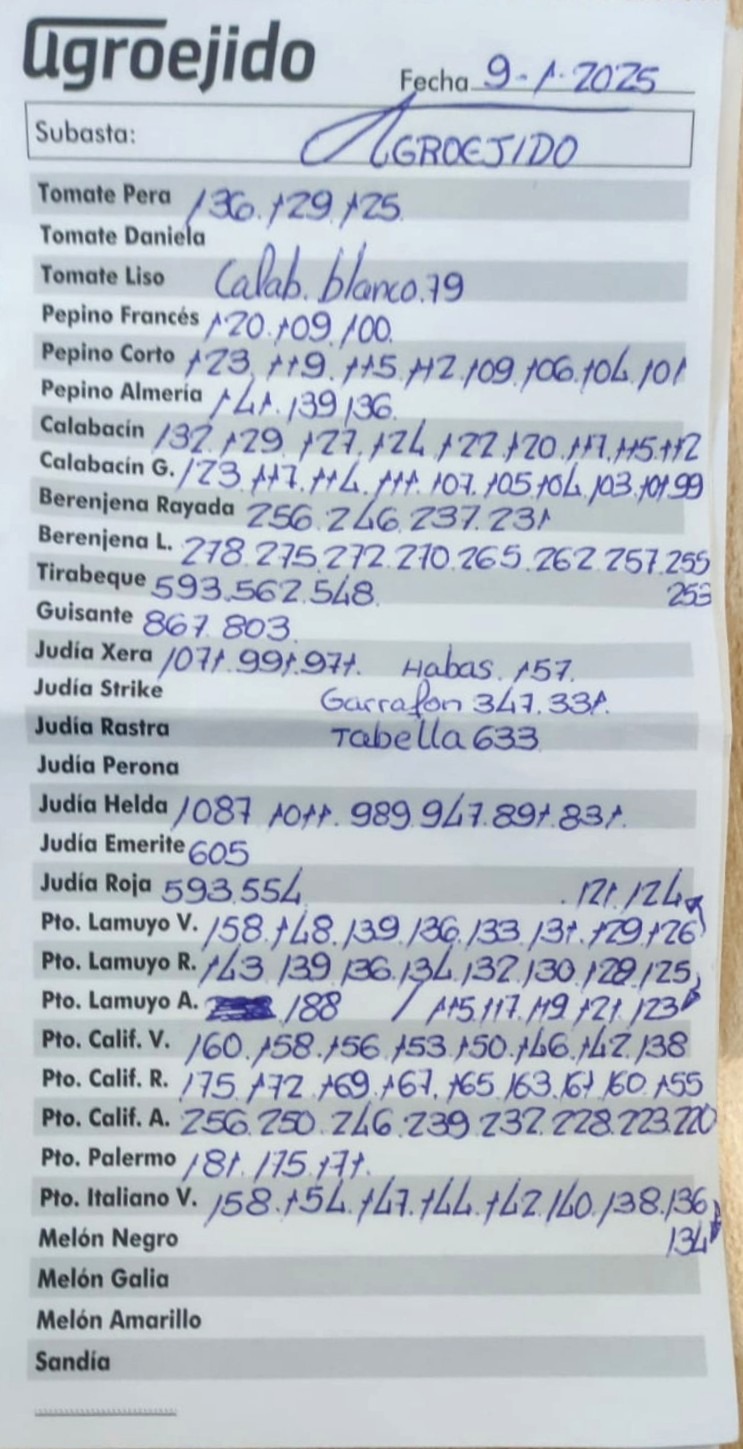 agroejido
Fecha 9-1-2025
Subasta: AGROEJIDO
Tomate Pera 136.129.125
Tomate Daniela
Tomate Liso Calab. blanco.79
Pepino Francés 120.109.100.
Pepino Corto 123.119.115.112.109.106.104.101
Pepino Almería 141.139.136.
Calabacín 132.129.127.124.122.120.117.115.112
Calabacín G. 123.117.114.111.107.105.104.103.101.99
Berenjena Rayada 256.246.237.231
Berenjena L. 278.275.272.270.265.262.257.255
253
Tirabeque 593.562.548.
Guisante 867.803.
Judía Xera 1071.991.971. Habas. 157.
Judía Strike Garrafon 347.331.
Judía Rastra Tabella 633
Judía Perona
Judía Helda 1087.1011.989.947.891.831.
Judía Emerite 605
Judía Roja 593.554 .121.124
Pto. Lamuyo V. 158.148.139.136.133.131.129.126
Pto. Lamuyo R. 143.139.136.134.132.130.128.125
Pto. Lamuyo A. 188 / 115.117.119.121.123
Pto. Calif. V. 160.158.156.153.150.146.142.138
Pto. Calif. R. 175.172.169.167.165.163.161.160.155
Pto. Calif. A. 256.250.246.239.232.228.223.220
Pto. Palermo 181.175.171.
Pto. Italiano V. 158.154.147.144.142.140.138.136
134
Melón Negro
Melón Galia
Melón Amarillo
Sandía